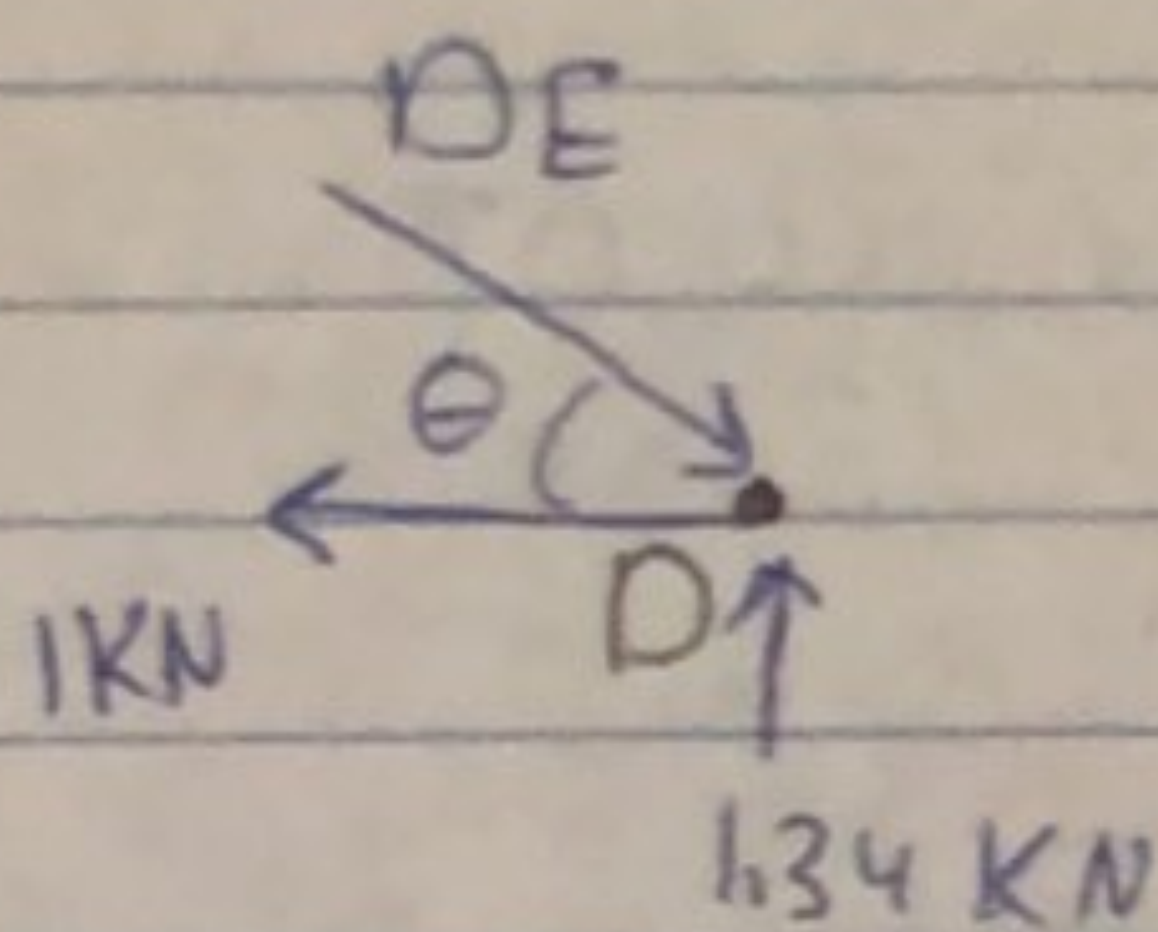 DE
θ
D
1KN
1.34 KN